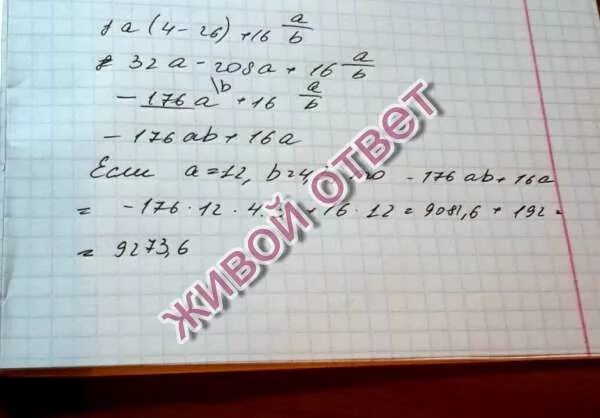 8a(4-26)+16 a/b
32a-208a+16 a/b
-176a\b+16 a/b
-176ab+16a
Если a=12, b=4, -176ab+16a
= -176·12·4. +16·12=9081,6+192=
= 9273,6
ЖИВОЙ ОТВЕТ